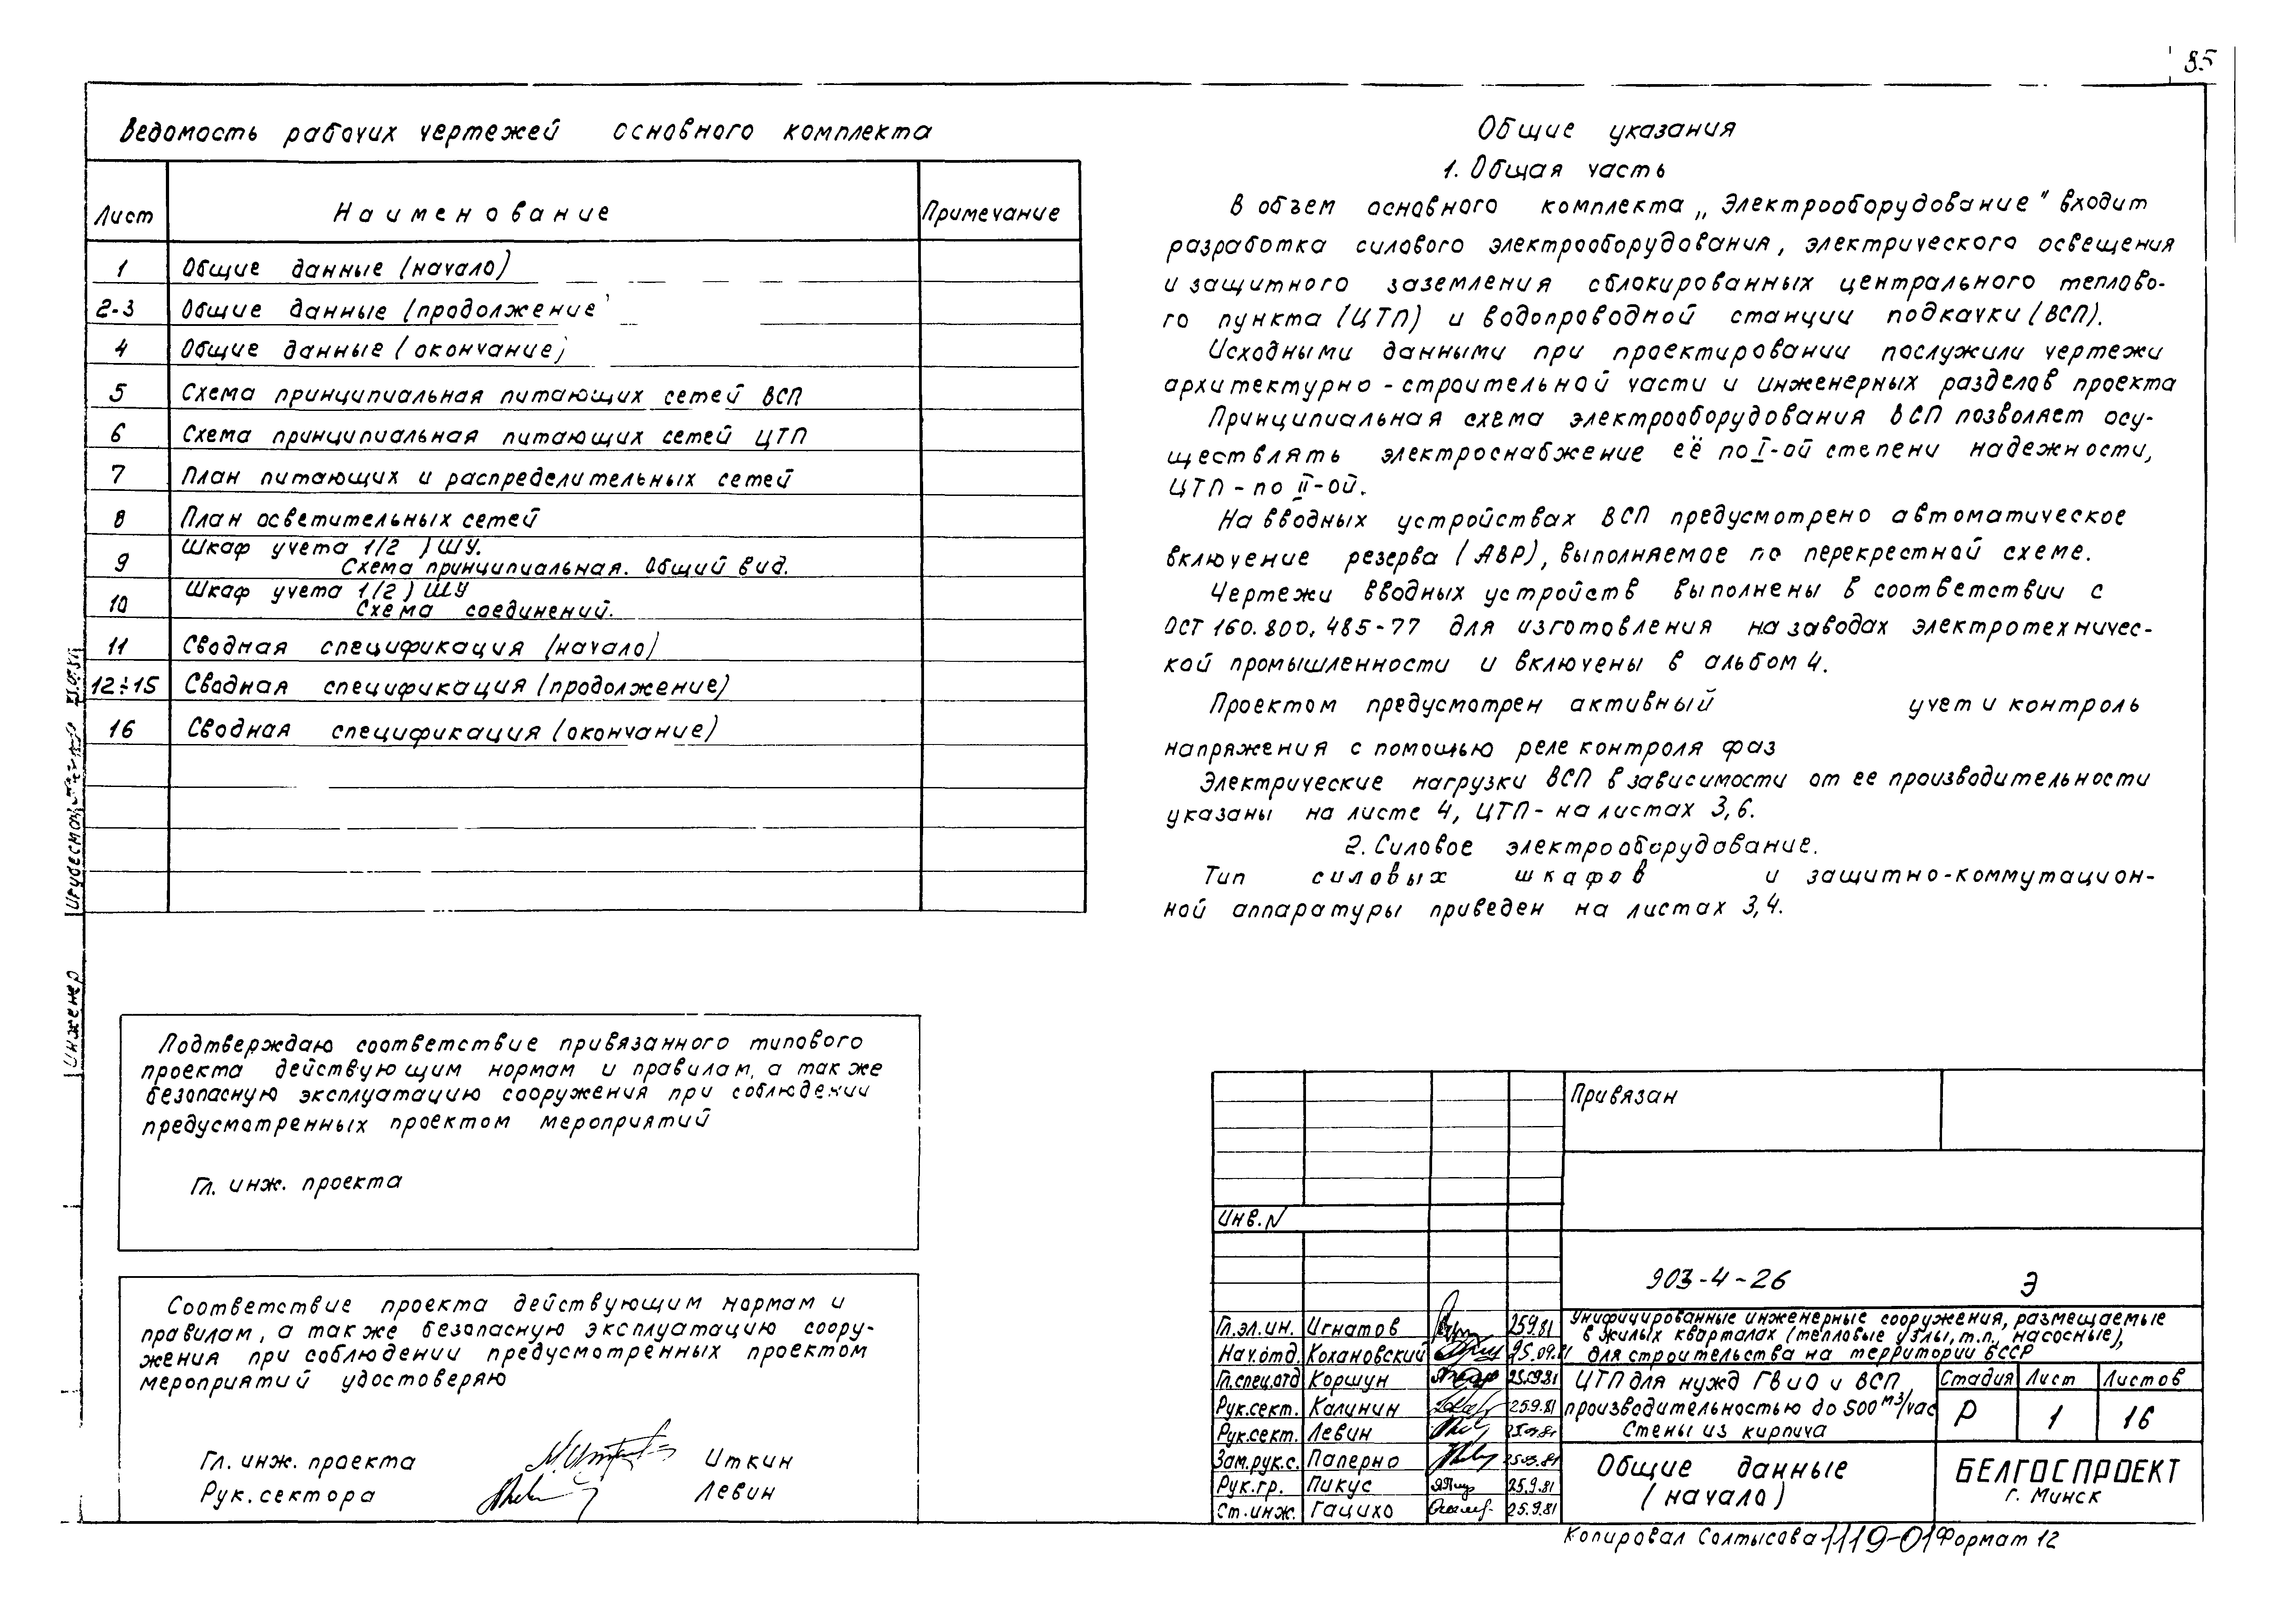 85
Ведомость рабочих чертежей основного комплекта
Лист Наименование Примечание
1 Общие данные (начало)
2-3 Общие данные (продолжение
4 Общие данные (окончание)
5 Схема принципиальная питающих сетей ВСП
6 Схема принципиальная питающих сетей ЦТП
7 План питающих и распределительных сетей
8 План осветительных сетей
9 Шкаф учета 1(2) ШУ.
Схема принципиальная. Общий вид.
10 Шкаф учета 1(2) ШУ
Схема соединений.
11 Сводная спецификация (начало)
12÷15 Сводная спецификация (продолжение)
16 Сводная спецификация (окончание)
Общие указания
1. Общая часть
В объем основного комплекта „Электрооборудование" входит
разработка силового электрооборудования, электрического освещения
и защитного заземления сблокированных центрального теплово-
го пункта (ЦТП) и водопроводной станции подкачки (ВСП).
Исходными данными при проектировании послужили чертежи
архитектурно-строительной части и инженерных разделов проекта
Принципиальная схема электрооборудования ВСП позволяет осу-
ществлять электроснабжение её по I-ой степени надежности,
ЦТП - по II-ой.
На вводных устройствах ВСП предусмотрено автоматическое
включение резерва (АВР), выполняемое по перекрестной схеме.
Чертежи вводных устройств выполнены в соответствии с
ОСТ 160.800.485-77 для изготовления на заводах электротехничес-
кой промышленности и включены в альбом 4.
Проектом предусмотрен активный учет и контроль
напряжения с помощью реле контроля фаз
Электрические нагрузки ВСП в зависимости от ее производительности
указаны на листе 4, ЦТП - на листах 3,6.
2. Силовое электрооборудование.
Тип силовых шкафов и защитно-коммутацион-
ной аппаратуры приведен на листах 3,4.
Инженер
Подтверждаю соответствие привязанного типового
проекта действующим нормам и правилам, а так же
безопасную эксплуатацию сооружения при соблюдении
предусмотренных проектом мероприятий
Гл. инж. проекта
Соответствие проекта действующим нормам и
правилам, а так же безопасную эксплуатацию соору-
жения при соблюдении предусмотренных проектом
мероприятий удостоверяю
Гл. инж. проекта Иткин
Рук. сектора Левин
Привязан
Инв. N
903-4-26 Э
Гл.эл.ин. Игнатов 25.9.81
Нач.отд. Кохановский 25.09.81
Гл.спец.отд Коршун 25.09.81
Рук.сект. Калинин 25.9.81
Рук.сект. Левин
Зам.рук.с. Паперно
Рук.гр. Пикус 25.9.81
Ст.инж. Гацихо 25.9.81
Унифицированные инженерные сооружения, размещаемые
в жилых кварталах (тепловые узлы, т.п., насосные),
для строительства на территории БССР
ЦТП для нужд ГВ и О и ВСП
производительностью до 500 м3/час
Стены из кирпича
Стадия Лист Листов
Р 1 16
Общие данные
(начало)
БЕЛГОСПРОЕКТ
г. Минск
Копировал Солтысова 1119-01 Формат 12